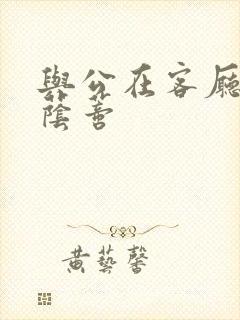 與公在客廳
陰善
黃藝馨